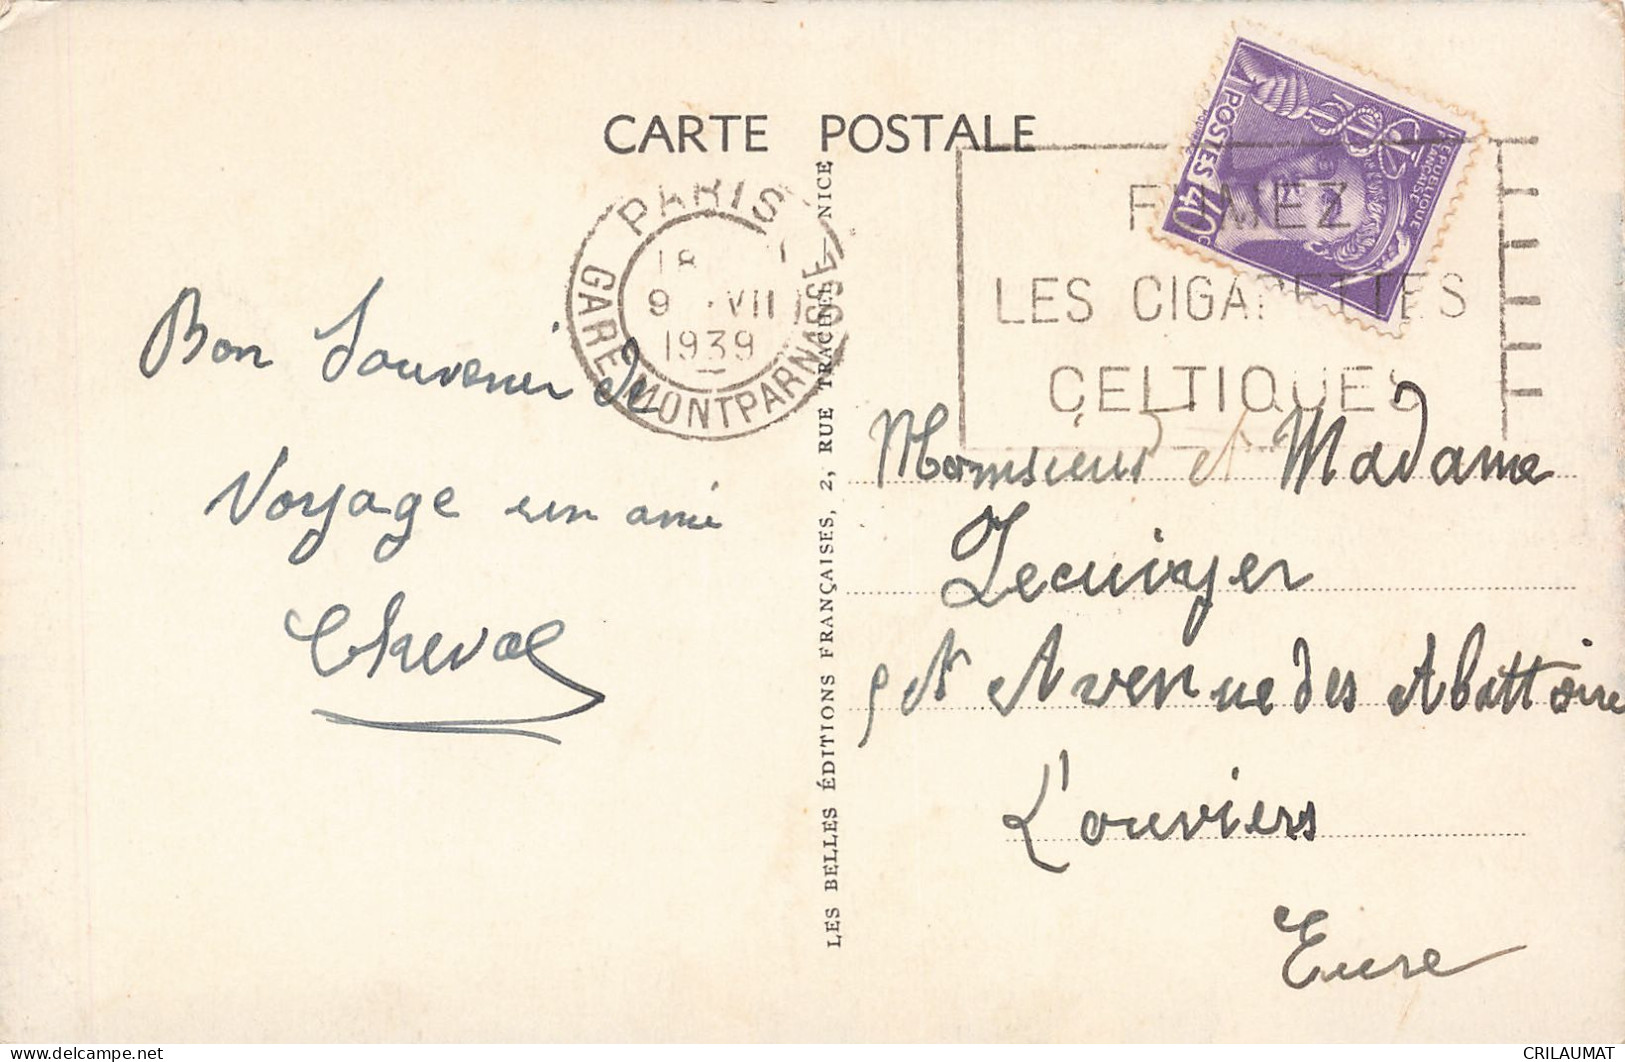 CARTE POSTALE
PARIS
GARE MONTPARNASSE
18
9 VII
1939
FUMEZ
LES CIGARETTES
CELTIQUES
REPUBLIQUE
FRANÇAISE
POSTES 40c
Bon Souvenir de
Voyage un ami
Cheval
LES BELLES ÉDITIONS FRANÇAISES, 2, RUE TRACHEL — NICE
Monsieur et Madame
Lecuiyer
Avenue des Abattoire
L'ouviers
Eure
CRILAUMAT